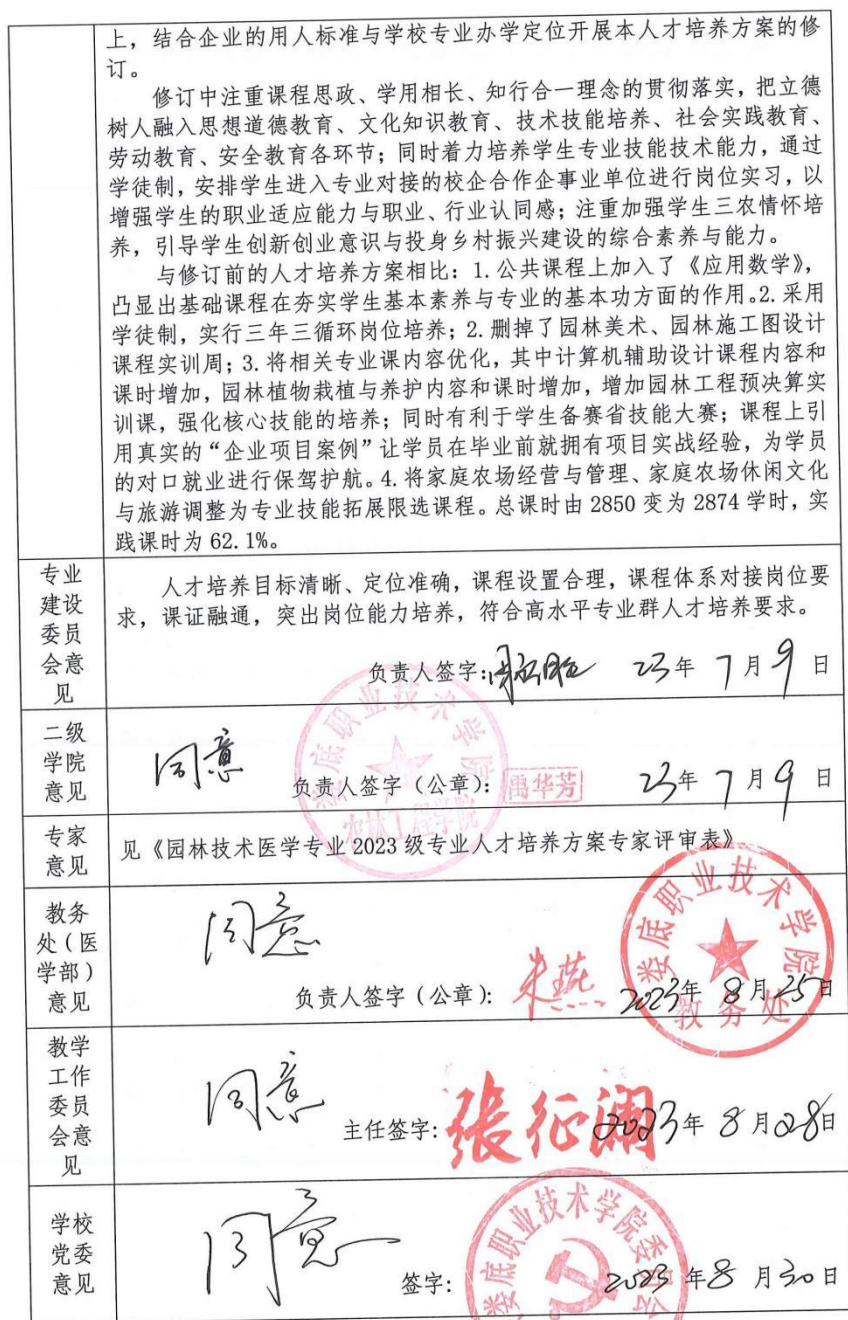 上，结合企业的用人标准与学校专业办学定位开展本人才培养方案的修
订。
修订中注重课程思政、学用相长、知行合一理念的贯彻落实，把立德
树人融入思想道德教育、文化知识教育、技术技能培养、社会实践教育、
劳动教育、安全教育各环节；同时着力培养学生专业技能技术能力，通过
学徒制，安排学生进入专业对接的校企合作企事业单位进行岗位实习，以
增强学生的职业适应能力与职业、行业认同感；注重加强学生三农情怀培
养，引导学生创新创业意识与投身乡村振兴建设的综合素养与能力。
与修订前的人才培养方案相比：1.公共课程上加入了《应用数学》，
凸显出基础课程在夯实学生基本素养与专业的基本功方面的作用。2.采用
学徒制，实行三年三循环岗位培养；2.删掉了园林美术、园林施工图设计
课程实训周；3.将相关专业课内容优化，其中计算机辅助设计课程内容和
课时增加，园林植物栽植与养护内容和课时增加，增加园林工程预决算实
训课，强化核心技能的培养；同时有利于学生备赛省技能大赛；课程上引
用真实的“企业项目案例”让学员在毕业前就拥有项目实战经验，为学员
的对口就业进行保驾护航。4.将家庭农场经营与管理、家庭农场休闲文化
与旅游调整为专业技能拓展限选课程。总课时由 2850 变为 2874 学时，实
践课时为 62.1%。
专业
建设
委员
会意
见
人才培养目标清晰、定位准确，课程设置合理，课程体系对接岗位要
求，课证融通，突出岗位能力培养，符合高水平专业群人才培养要求。
负责人签字： 23年 7月9日
二级
学院
意见
同意
娄底职业技术学院
农林工程学院
负责人签字（公章）： 禹华芳 23年 7月9日
专家
意见
见《园林技术医学专业 2023 级专业人才培养方案专家评审表》
教务
处（医
学部）
意见
同意
负责人签字（公章）： 朱燕 2023年 8月25日
娄底职业技术学院
教务处
教学
工作
委员
会意
见
同意
主任签字： 张征澜 2023年 8月28日
学校
党委
意见
同意
签字： 2023年8月30日
娄底职业技术学院委员会